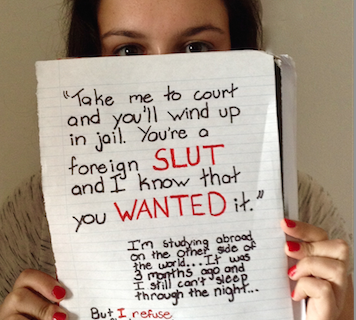 "Take me to court
and you'll wind up
in jail. You're a
foreign SLUT
and I know that
you WANTED it."
I'm studying abroad
on the other side of
the world... It was
3 months ago and
I still can't sleep
through the night...
But I refuse